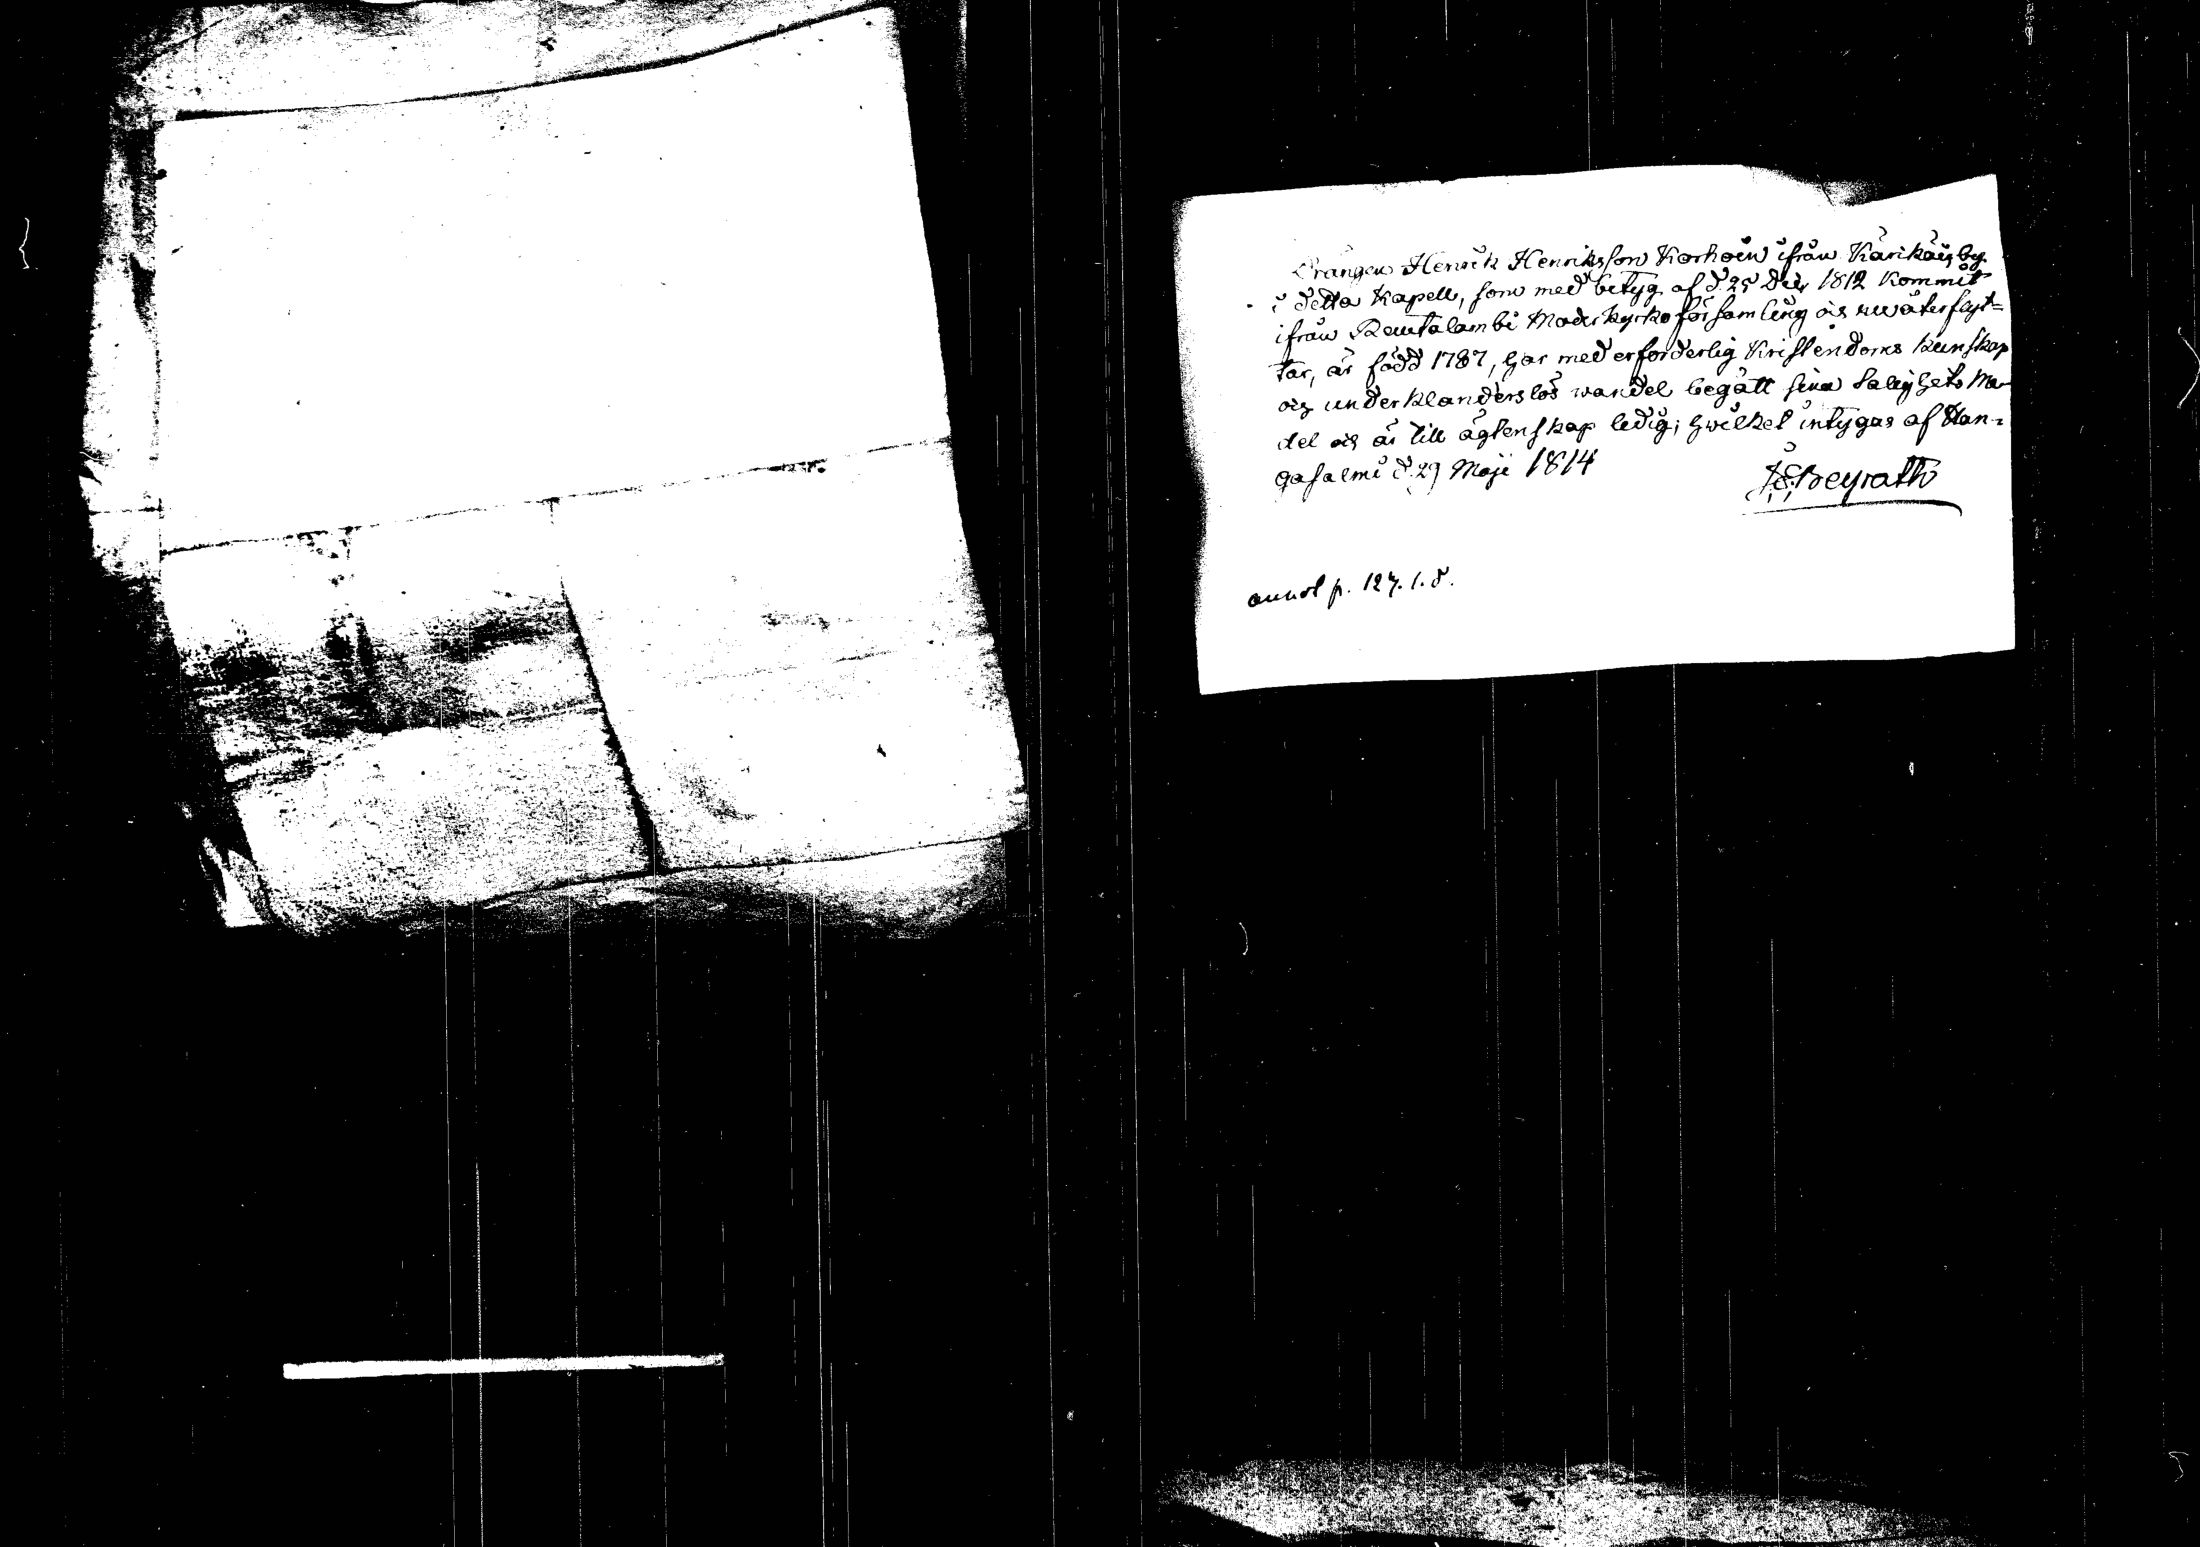 Drängen Henrik Henriksson Korhoin ifrån Kärikäis by
i detta Kapell, som med betyg af d. 25 Dec 1812 kommit
ifrån Rautalambi Moderkyrko församling och nu återflyt-
tar, är född 1787, har med erforderlig Kristendoms kunskap
och underklanderslös wandel begått sina Salighets Me-
del och är till ägtenskap ledig; hwilket intygas af Han-
gasalmi d. 29 Maji 1814
annot p. 127. 1. d.